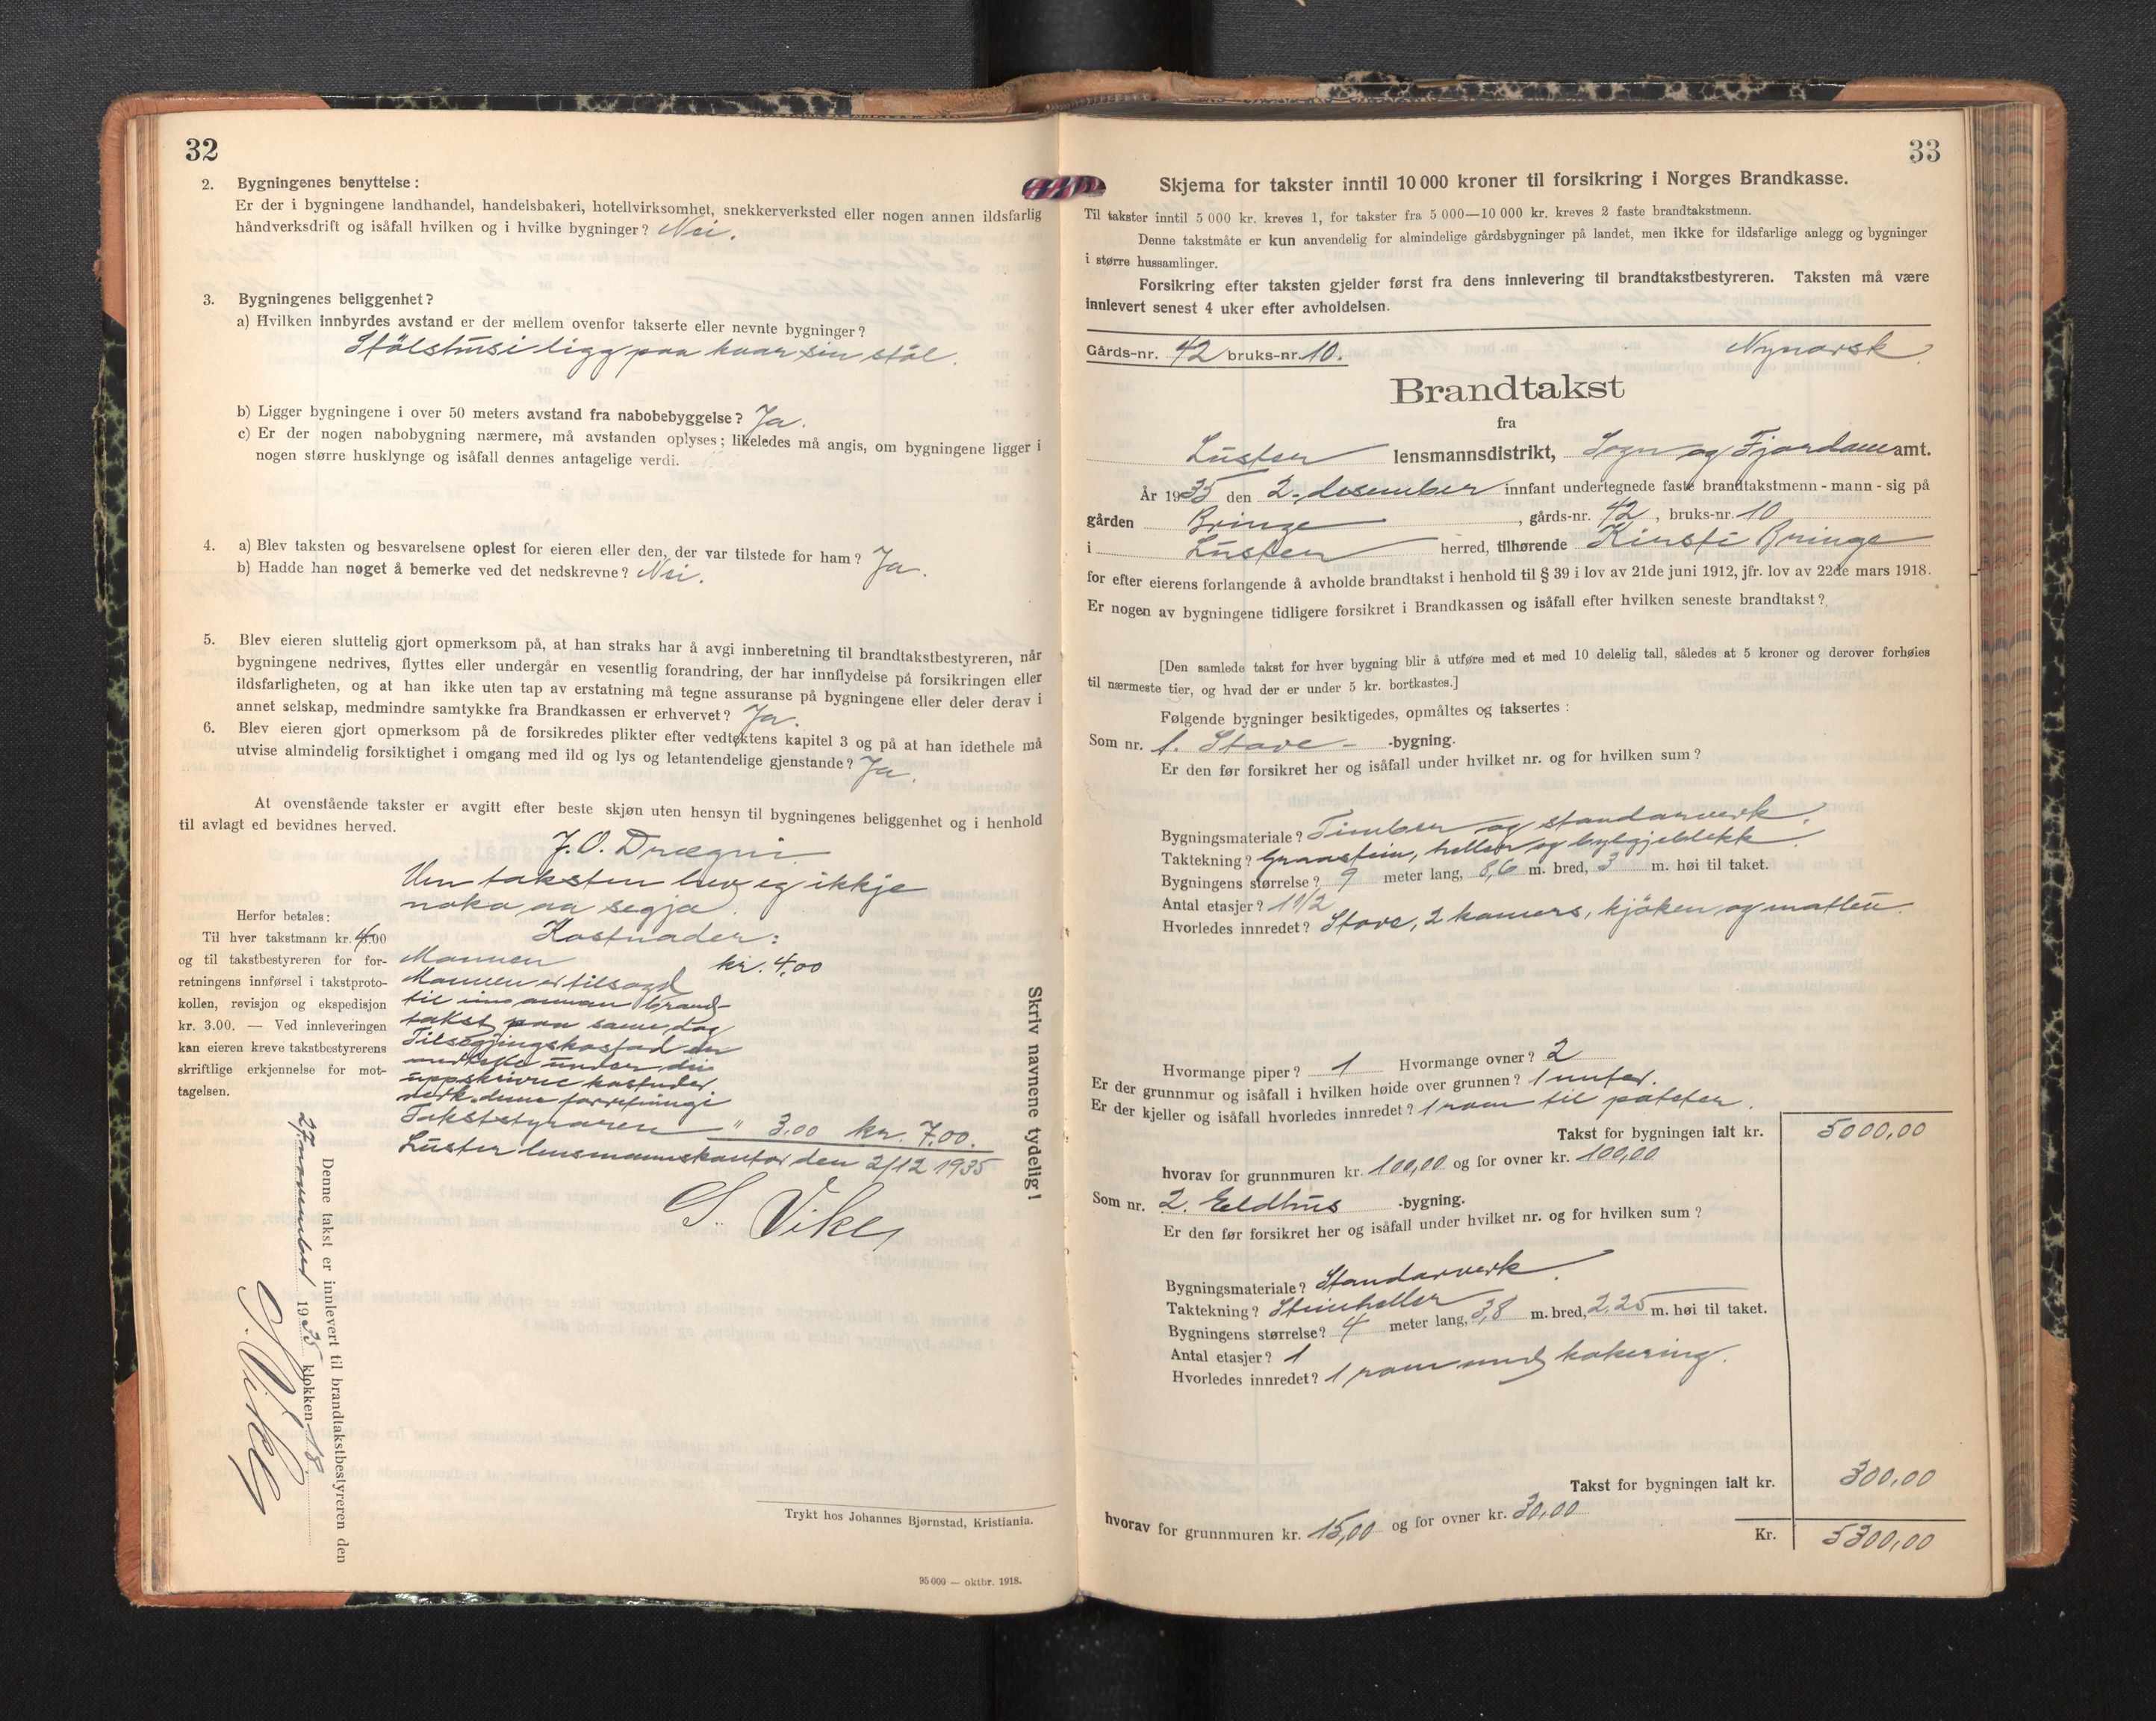 32
2. Bygningenes benyttelse:
Er der i bygningene landhandel, handelsbakeri, hotellvirksomhet, snekkerverksted eller nogen annen ildsfarlig
håndverksdrift og isåfall hvilken og i hvilke bygninger? Nei.
3. Bygningenes beliggenhet?
a) Hvilken innbyrdes avstand er der mellem ovenfor takserte eller nevnte bygninger?
Stölshusi ligg paa kvar sin stöl.
b) Ligger bygningene i over 50 meters avstand fra nabobebyggelse? Ja.
c) Er der nogen nabobygning nærmere, må avstanden oplyses; likeledes må angis, om bygningene ligger i
nogen større husklynge og isåfall dennes antagelige verdi.
4. a) Blev taksten og besvarelsene oplest for eieren eller den, der var tilstede for ham? Ja.
b) Hadde han noget å bemerke ved det nedskrevne? Nei.
5. Blev eieren sluttelig gjort opmerksom på, at han straks har å avgi innberetning til brandtakstbestyreren, når
bygningene nedrives, flyttes eller undergår en vesentlig forandring, der har innflydelse på forsikringen eller
ildsfarligheten, og at han ikke uten tap av erstatning må tegne assuranse på bygningene eller deler derav i
annet selskap, medmindre samtykke fra Brandkassen er erhvervet? Ja.
6. Blev eieren gjort opmerksom på de forsikredes plikter efter vedtektens kapitel 3 og på at han idethele må
utvise almindelig forsiktighet i omgang med ild og lys og letantendelige gjenstande? Ja.
At ovenstående takster er avgitt efter beste skjøn uten hensyn til bygningenes beliggenhet og i henhold
til avlagt ed bevidnes herved.
J. O. Drægni
Um taksten hev eg ikkje
noko aa segja.
Kostnader:
Mannen kr. 4,00
Mannen er tilsagd
til ein annan brand-
takst paa same dag
Tilsegjingskostnad er
under dei
uppskrivne kostnader
denne forretningi
Takststyraren " 3.00 kr. 7.00.
Luster lensmannskontor den 2/12 1935
S. Vike
Herfor betales:
Til hver takstmann kr. 4.00
og til takstbestyreren for for-
retningens innførsel i takstproto-
kollen, revisjon og ekspedisjon
kr. 3.00. — Ved innleveringen
kan eieren kreve takstbestyrerens
skriftlige erkjennelse for mot-
tagelsen.
Skriv navnene tydelig!
Denne takst er innlevert til brandtakstbestyreren den
27 november 1935 klokken 18.
S. Vike
Trykt hos Johannes Bjørnstad, Kristiania.
95 000 — oktbr. 1918.
33
Skjema for takster inntil 10 000 kroner til forsikring i Norges Brandkasse.
Til takster inntil 5 000 kr. kreves 1, for takster fra 5 000—10 000 kr. kreves 2 faste brandtakstmenn.
Denne takstmåte er kun anvendelig for almindelige gårdsbygninger på landet, men ikke for ildsfarlige anlegg og bygninger
i større hussamlinger.
Forsikring efter taksten gjelder først fra dens innlevering til brandtakstbestyreren. Taksten må være
innlevert senest 4 uker efter avholdelsen.
Gårds-nr. 42 bruks-nr. 10. Nynorsk.
Brandtakst
fra
Luster lensmannsdistrikt, Sogn og Fjordane amt.
År 1935 den 2. desember innfant undertegnede faste brandtakstmenn - mann - sig på
gården Bringe, gårds-nr. 42, bruks-nr. 10
i Luster herred, tilhørende Kirsti Bringe
for efter eierens forlangende å avholde brandtakst i henhold til § 39 i lov av 21de juni 1912, jfr. lov av 22de mars 1918.
Er nogen av bygningene tidligere forsikret i Brandkassen og isåfall efter hvilken seneste brandtakst?
[Den samlede takst for hver bygning blir å utføre med et med 10 delelig tall, således at 5 kroner og derover forhøies
til nærmeste tier, og hvad der er under 5 kr. bortkastes.]
Følgende bygninger besiktigedes, opmåltes og taksertes:
Som nr. 1. Stove- -bygning.
Er den før forsikret her og isåfall under hvilket nr. og for hvilken sum?
Bygningsmateriale? Timber og standarverk.
Taktekning? Graastein, heller og bylgjeblekk.
Bygningens størrelse? 9 meter lang, 8,6 m. bred, 3 m. høi til taket.
Antal etasjer? 1 1/2
Hvorledes innredet? Stove, 2 kamers, kjöken og matbu.
Hvormange piper? 1 Hvormange ovner? 2
Er der grunnmur og isåfall i hvilken høide over grunnen? 1 meter.
Er der kjeller og isåfall hvorledes innredet? 1 rom til poteter.
Takst for bygningen ialt kr. 5000,00
hvorav for grunnmuren kr. 100,00 og for ovner kr. 100,00
Som nr. 2. Eldhus -bygning.
Er den før forsikret her og isåfall under hvilket nr. og for hvilken sum?
Bygningsmateriale? Standarverk.
Taktekning? Steinheller
Bygningens størrelse? 4 meter lang, 3,8 m. bred, 2,25 m. høi til taket.
Antal etasjer? 1
Hvorledes innredet? 1 rom med kokering.
Takst for bygningen ialt kr. 300,00
hvorav for grunnmuren kr. 15,00 og for ovner kr. 30,00
Kr. 5300,00